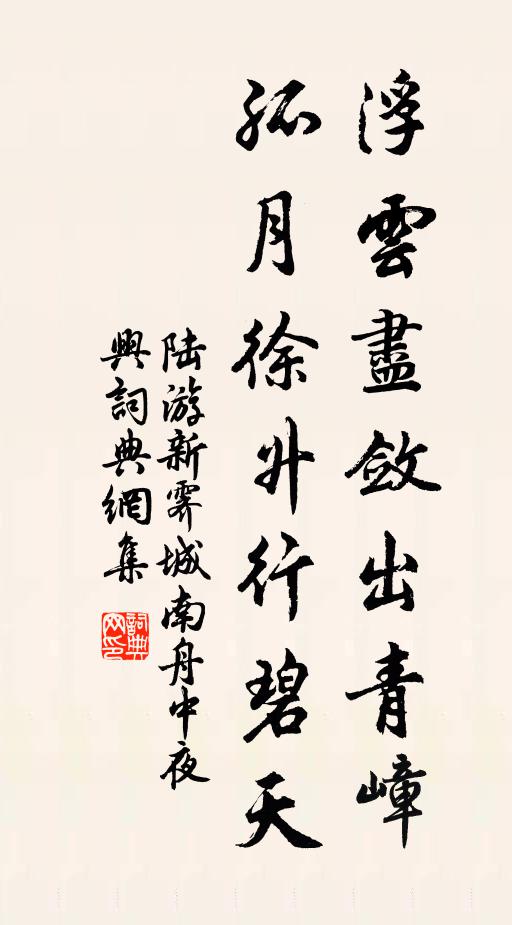 浮雲盡斂出青嶂
孤月徐升行碧天
陆游新霽城南舟中夜
興詞典網集
詞典网印